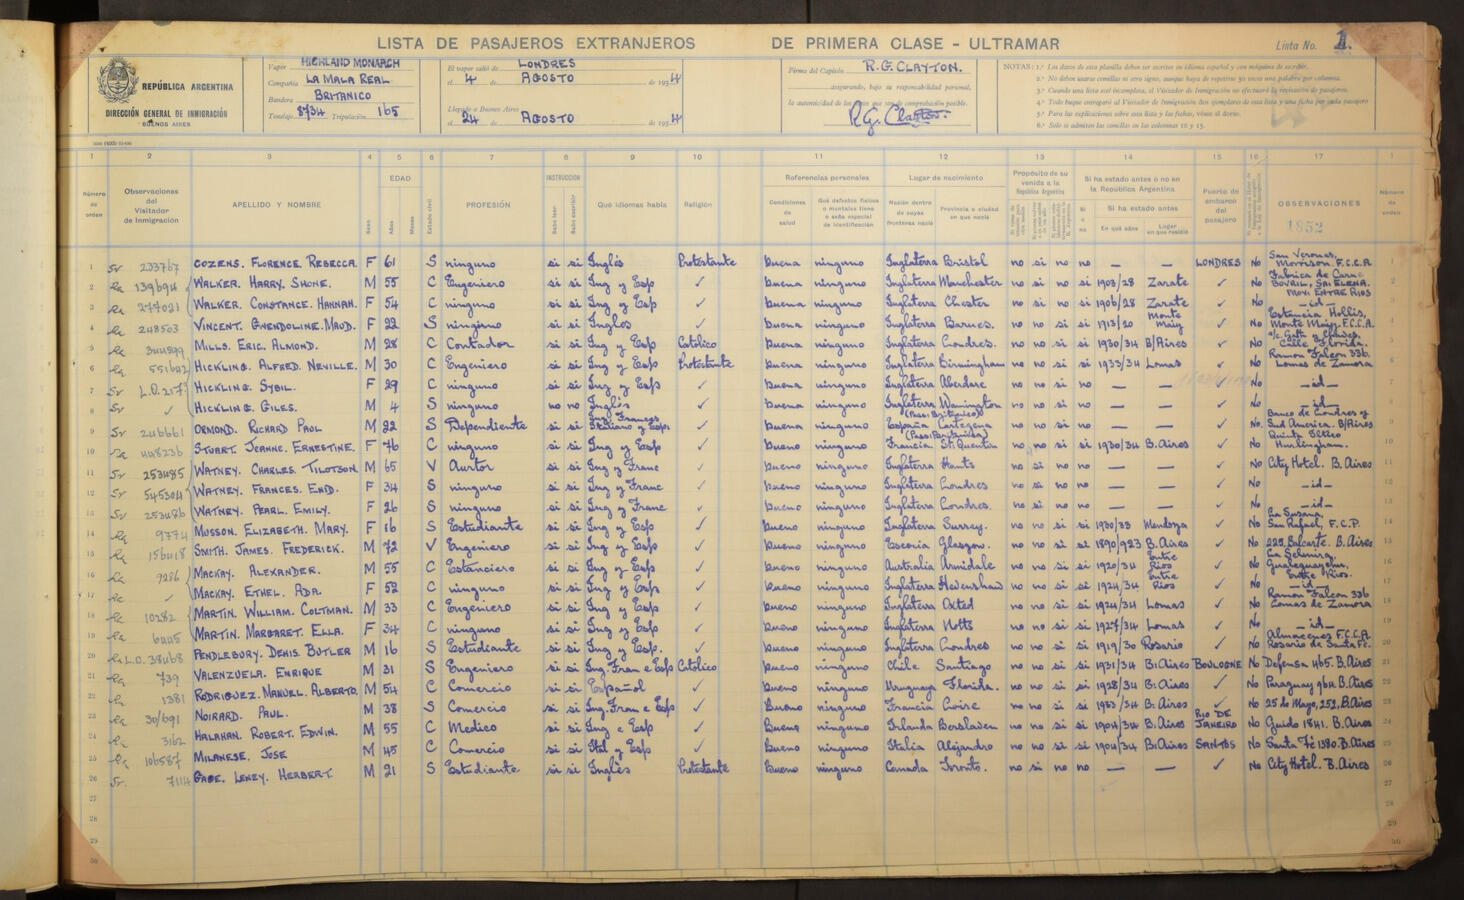 LISTA DE PASAJEROS EXTRANJEROS DE PRIMERA CLASE - ULTRAMAR Lista No. 1.
REPÚBLICA ARGENTINA
DIRECCIÓN GENERAL DE INMIGRACIÓN
BUENOS AIRES
Vapor HIGHLAND MONARCH
Compañía LA MALA REAL
Bandera BRITANICO
Tonelaje 8734 Tripulación 165
El vapor salió de LONDRES
el 4 de AGOSTO de 1934
Llegado a Buenos Aires
el 24 de AGOSTO de 1934
Firma del Capitán R.G. CLAYTON.
asegurando, bajo su responsabilidad personal,
R.G. Clayton.
NOTAS: 1.º Los datos de esta planilla deben ser escritos en idioma español y con máquina de escribir.
1 2 3 4 5 6 7 8 9 10 11 12 13 14 15 16 17 1
Número de orden
Observaciones del Visitador de Inmigración
APELLIDO Y NOMBRE
Sexo
EDAD
Años
Meses
Estado civil
PROFESIÓN
INSTRUCCIÓN
Sabe leer
Sabe escribir
Qué idiomas habla
Religión
Referencias personales
Condiciones de salud
Qué defectos físicos o mentales tiene o seña especial de identificación
Lugar de nacimiento
Nación dentro de cuyas fronteras nació
Provincia o ciudad en que nació
Propósito de su venida a la República Argentina
Si ha estado antes o no en la República Argentina
Si o no
Si ha estado antes
En qué años
Lugar en que residió
Puerto de embarco del pasajero
OBSERVACIONES
1852
Número de orden
1 233767 COZENS. FLORENCE. REBECCA. F 61 S ninguno si si Inglés Protestante buena ninguno Inglaterra Bristol no si no no — — LONDRES No Morrison F.C.C.A.
2 139694 WALKER. HARRY. SHONE. M 55 C Engeniero si si Ing y Esp ✓ buena ninguno Inglaterra Manchester no no si si 1908/28 Zarate ✓ No Fabrica de Carne BOVRIL, Sta ELENA. PROV. ENTRE RIOS
3 277021 WALKER. CONSTANCE. HANNAH. F 54 C ninguno si si Ing y Esp ✓ buena ninguno Inglaterra Chester no no si si 1906/28 Zarate ✓ No —id—
4 248503 VINCENT. GWENDOLINE. MAUD. F 22 S ninguno si si Ingles ✓ buena ninguno Inglaterra Barnes. no no si si 1913/20 Monte Maiz ✓ No Estancia Hollis, Monte Maiz. F.C.C.A.
5 344599 MILLS. ERIC. ALMOND. M 28 C Contador si si Ing y Esp Catolico buena ninguno Inglaterra Londres. no no si si 1930/34 B/Aires ✓ No Calle Florida.
6 551642 HICKLING. ALFRED. NEVILLE. M 30 C Engeniero si si Ing y Esp Protestante buena ninguno Inglaterra Birmingham no no si si 1933/34 Lomas ✓ No Ramon Falcon 336. Lomas de Zamora
7 HICKLING. SYBIL. F 29 C ninguno si si Ing y Esp ✓ Buena ninguno Inglaterra Aberdare no no si no — — ✓ No —id—
8 ✓ HICKLING. GILES. M 4 S ninguno no no Inglés ✓ Buena ninguno Inglaterra no no si no — — ✓ No —id—
9 246661 ORMOND. RICHARD PAUL M 22 S Dependiente si si Ing. Frances Italiano y Esp. ✓ Buena ninguno España Cartegena (Pass: Britanico) no no si no — — ✓ No Banco de Londres y Sud America. B/Aires
10 448236 STUART. JEANNE. ERNESTINE. F 76 C ninguno si si Ing y Esp ✓ Bueno ninguno Francia St. Quentin (Pass: Britanico) no no si si 1930/34 B. Aires ✓ No Hurlingham.
11 253485 WATNEY. CHARLES. TILOTSON. M 65 V Aurtor si si Ing y Franc ✓ Bueno ninguno Inglaterra Hants no si no no — — ✓ No City Hotel. B. Aires
12 545304 WATNEY. FRANCES. ENID. F 34 S ninguno si si Ing y Franc ✓ Bueno ninguno Inglaterra Londres no si no no — — ✓ No —id—
13 253486 WATNEY. PEARL. EMILY. F 26 S ninguno si si Ing y Franc ✓ Bueno ninguno Inglaterra Londres. no si no no — — ✓ No —id—
14 9774 MUSSON. ELIZABETH. MARY. F 16 S Estudiante si si Ing y Esp ✓ Bueno ninguno Inglaterra Surrey. no no si si 1930/33 Mendoza ✓ No San Rafael, F.C.P.
15 156418 SMITH. JAMES. FREDERICK. M 72 V Engeniero si si Ing y Esp ✓ Bueno ninguno Escocia Glasgow. no no si si 1890/923 B. Aires ✓ No 225, Balcarte. B. Aires
16 9286 MACKAY. ALEXANDER. M 55 C Estanciero si si Ing y Esp ✓ bueno ninguno Australia Armidale no no si si 1920/34 Entre Rios ✓ No Gualeguaychu, Entre Rios.
17 ✓ MACKAY. ETHEL. ADA. F 52 C ninguno si si Ing y Esp ✓ bueno ninguno Inglaterra no no si si 1924/34 Entre Rios ✓ No —id—
18 10282 MARTIN. WILLIAM. COLTMAN. M 33 C Engeniero si si Ing y Esp ✓ bueno ninguno Inglaterra Oxted no no si si 1924/34 Lomas ✓ No Ramon Falcon 336 Lomas de Zamora
19 6445 MARTIN. MARGARET. ELLA. F 34 C ninguno si si Ing y Esp ✓ bueno ninguno Inglaterra Notts no no si si 1927/34 Lomas. ✓ No —id—
20 L.O. 38468 PENDLEBURY. DENIS. BUTLER M 16 S Estudiante si si Ing y Esp. ✓ bueno ninguno Inglaterra Londres no no si si 1919/30 Rosario ✓ No Almacenes F.C.C.A. Rosario de Santa Fé.
21 739 VALENZUELA. ENRIQUE M 31 S Engeniero si si Ing Fran e Esp Catolico bueno ninguno Chile Santiago no no si si 1931/34 B. Aires BOULOGNE No Defensa 465. B. Aires
22 1381 RODRIGUEZ. MANUEL. ALBERTO. M 54 C Comercio si si Español ✓ bueno ninguno Uruguay Florida. no no si si 1928/34 B. Aires ✓ No Paraguay 964. B. Aires
23 30/691 NOIRARD. PAUL. M 38 S Comercio si si Ing. Fran e Esp ✓ Bueno ninguno Francia no no si si B. Aires ✓ No 25 de Mayo, 252, B. Aires
24 3162 HALAHAN. ROBERT. EDWIN. M 55 C Medico si si Ing e Esp ✓ Bueno ninguno Irlanda no no si si 1904/34 B. Aires RIO DE JANEIRO No Guido 1841. B. Aires
25 106587 MILANESE. JOSE M 45 C Comercio si si Ital y Esp ✓ Bueno ninguno Italia Alejandro no no si si 1904/34 B. Aires SANTOS No Santa Fé 1380. B. Aires
26 7114 GAGE. LENEY. HERBERT M 21 S Estudiante si si Inglés Protestante Bueno ninguno Canada Toronto. no si no no — — ✓ No City Hotel. B. Aires
27
28
29
30